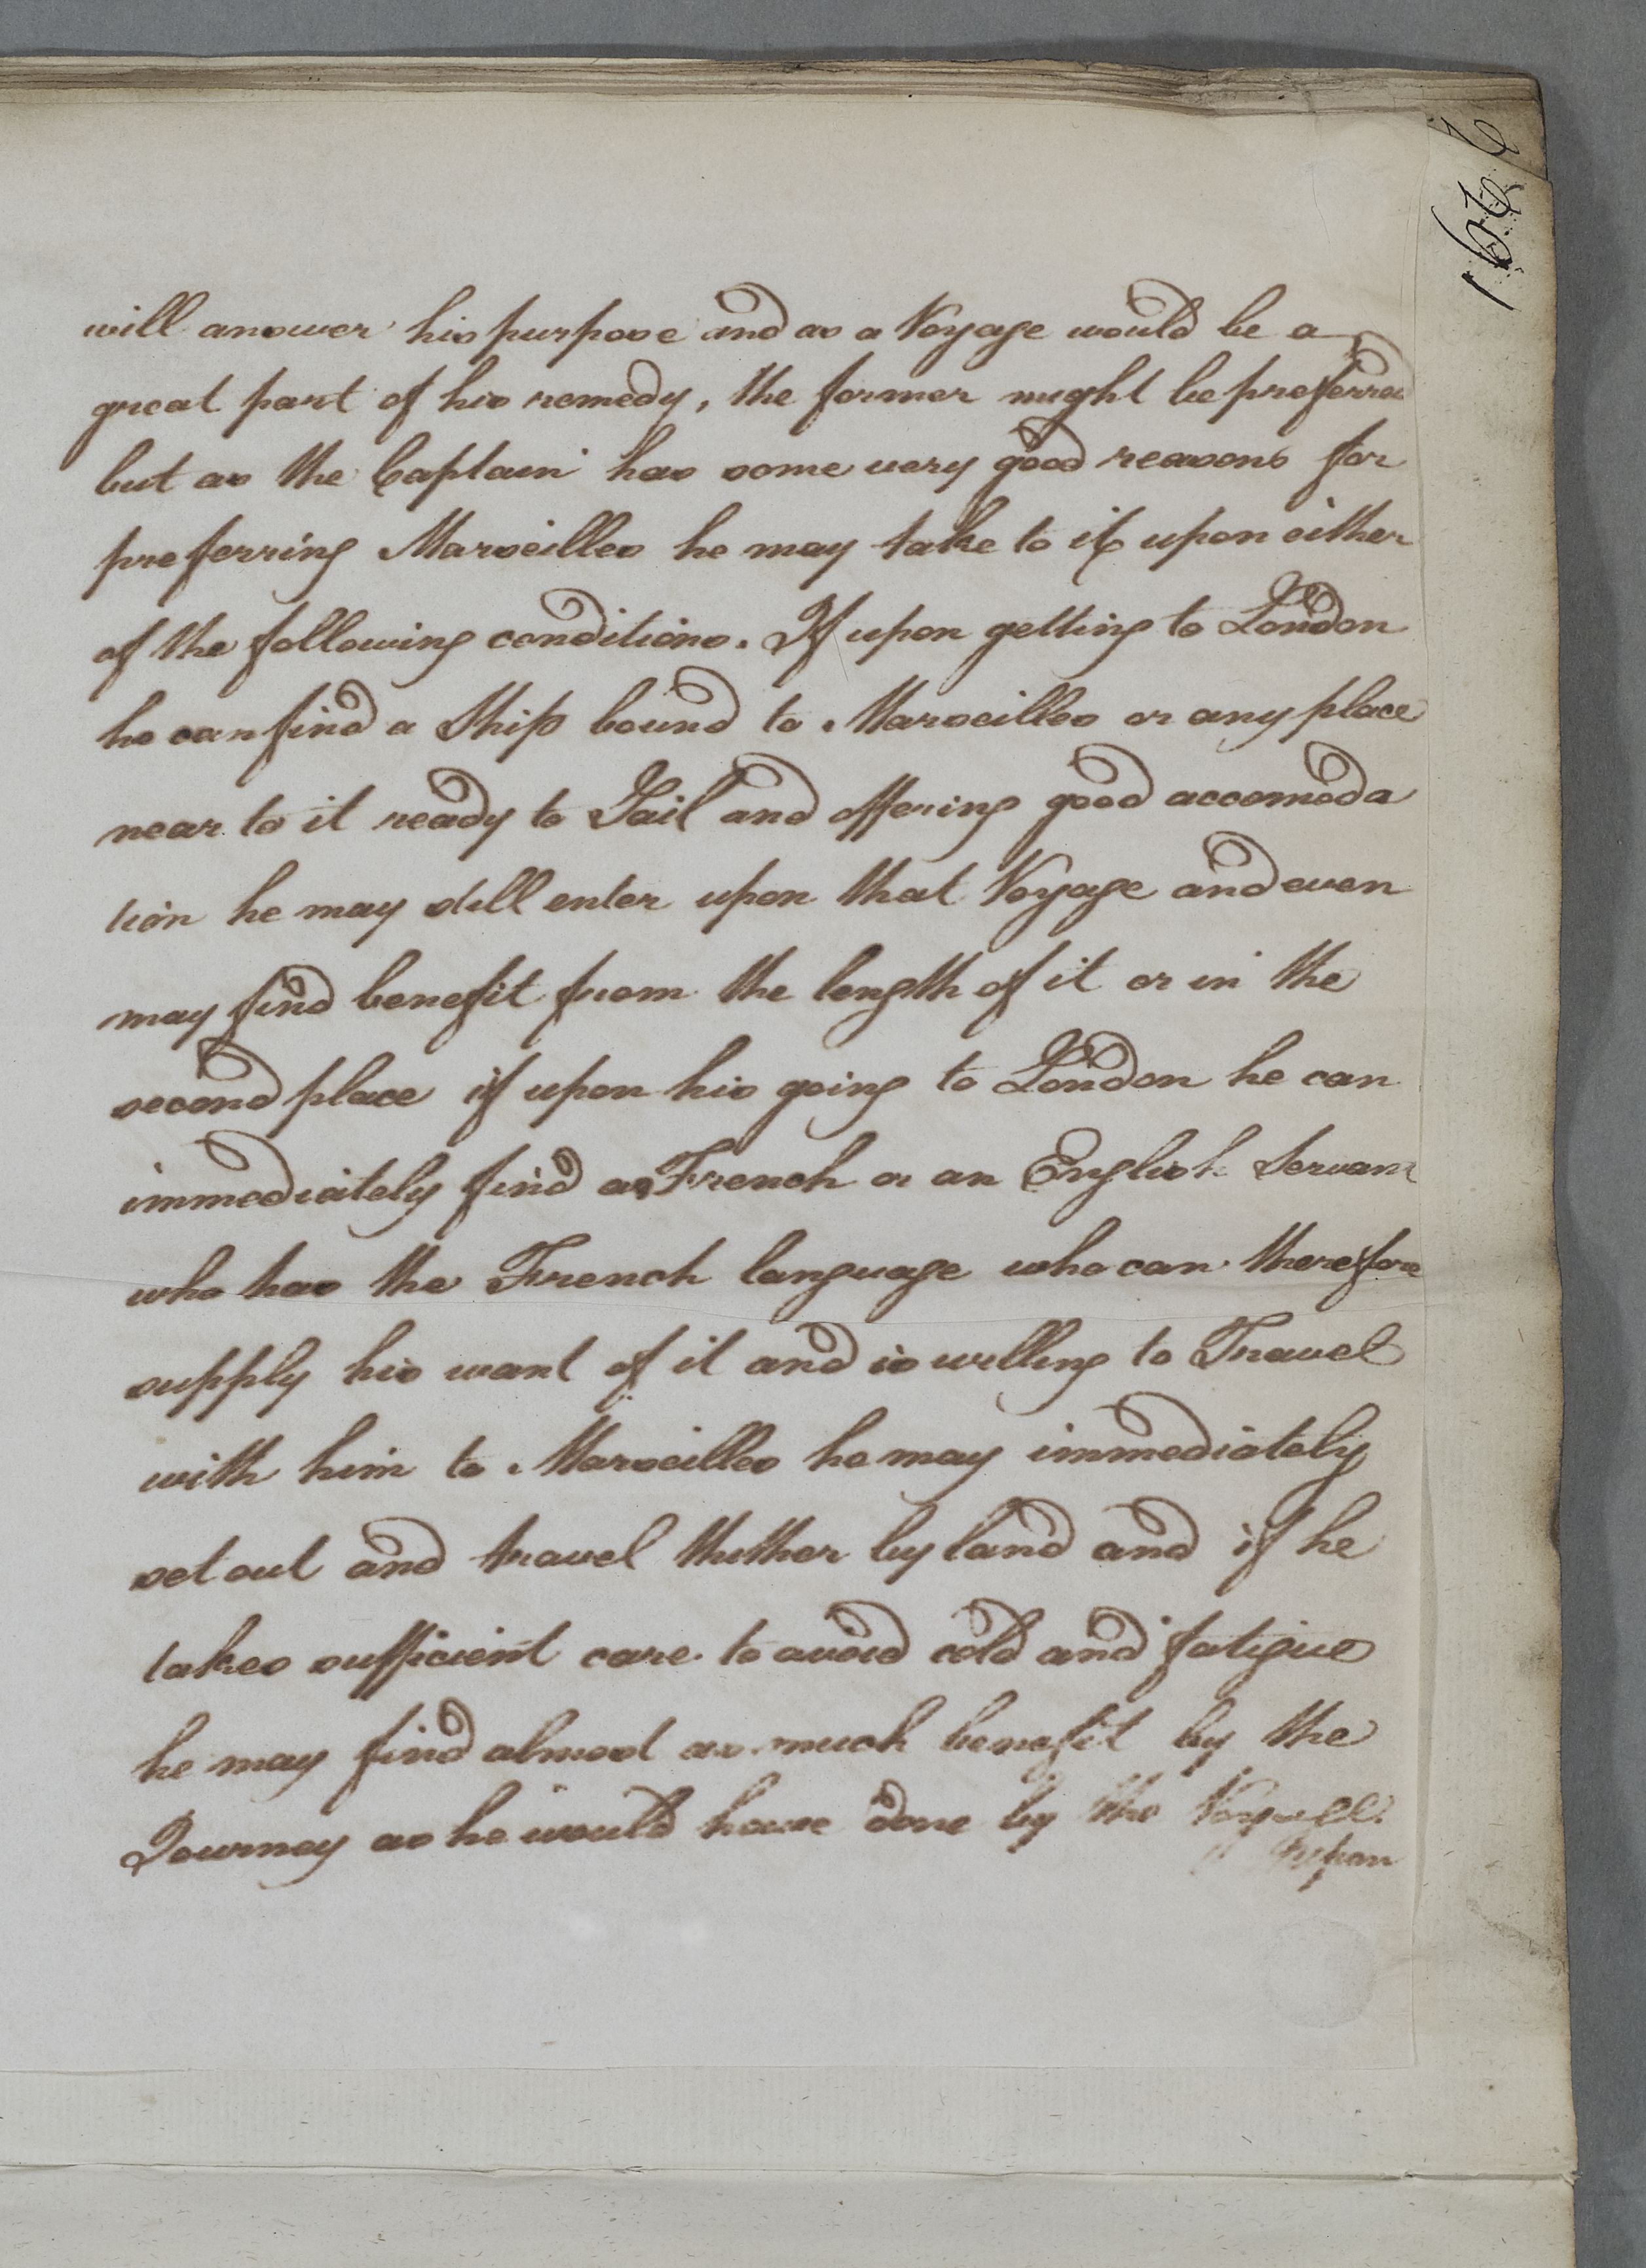 will answer his purpose and as a Voyage would be a
great part of his remedy, the former might be preferred
but as the Captain has some very good reasons for
preferring Marseilles he may take to it upon either
of the following conditions. If upon getting to London
he can find a Ship bound to Marseilles or any place
near to it ready to Sail and offering good accomoda
tion he may still enter upon that Voyage and even
may find benefit from the length of it or in the
second place if upon his going to London he can
immediately find a French or an English Servant
who has the French language who can therefore
supply his want of it and is willing to Travel
with him to Marseilles he may immediately
set out and travel thither by land and if he
takes sufficient care to avoid cold and fatigue
he may find almost as much benefit by the
Journey as he would have done by the Voyage.
upon